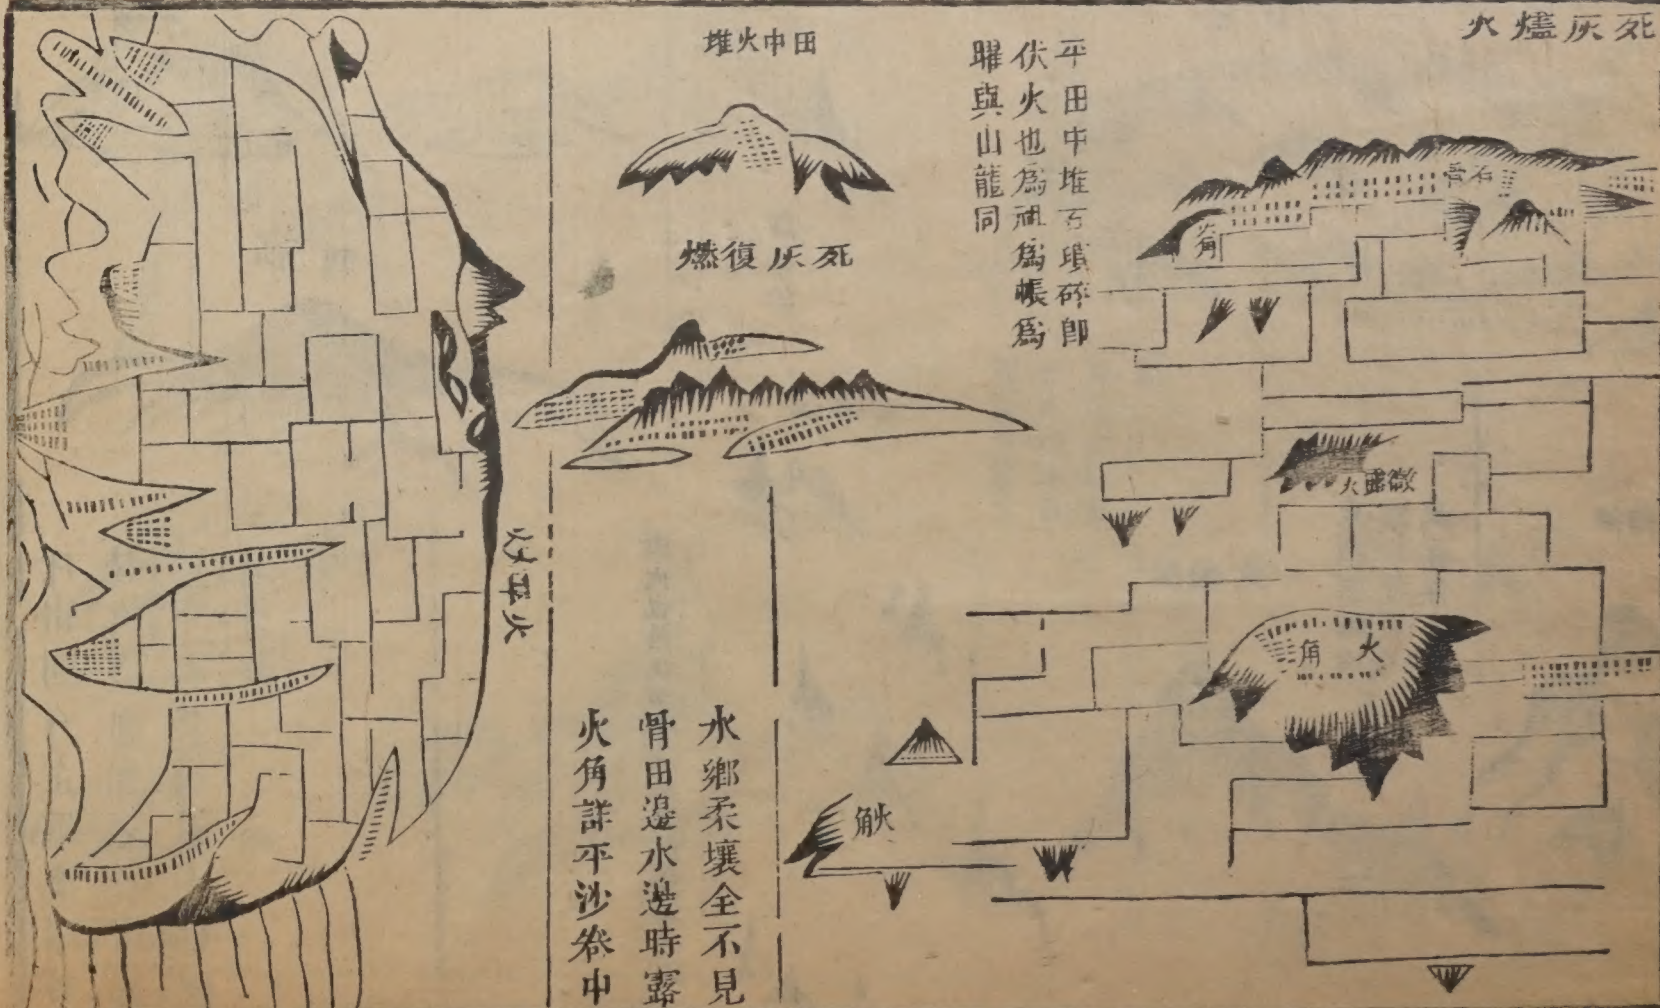 死灰燼火
石骨
火角
微露火
火角
火角
平田中堆石瑣碎即
伏火也爲祖爲帳爲
曜與山龍同
田中火堆
死灰復燃
水鄉柔壤全不見
骨田邊水邊時露
火角詳平沙卷中
平火